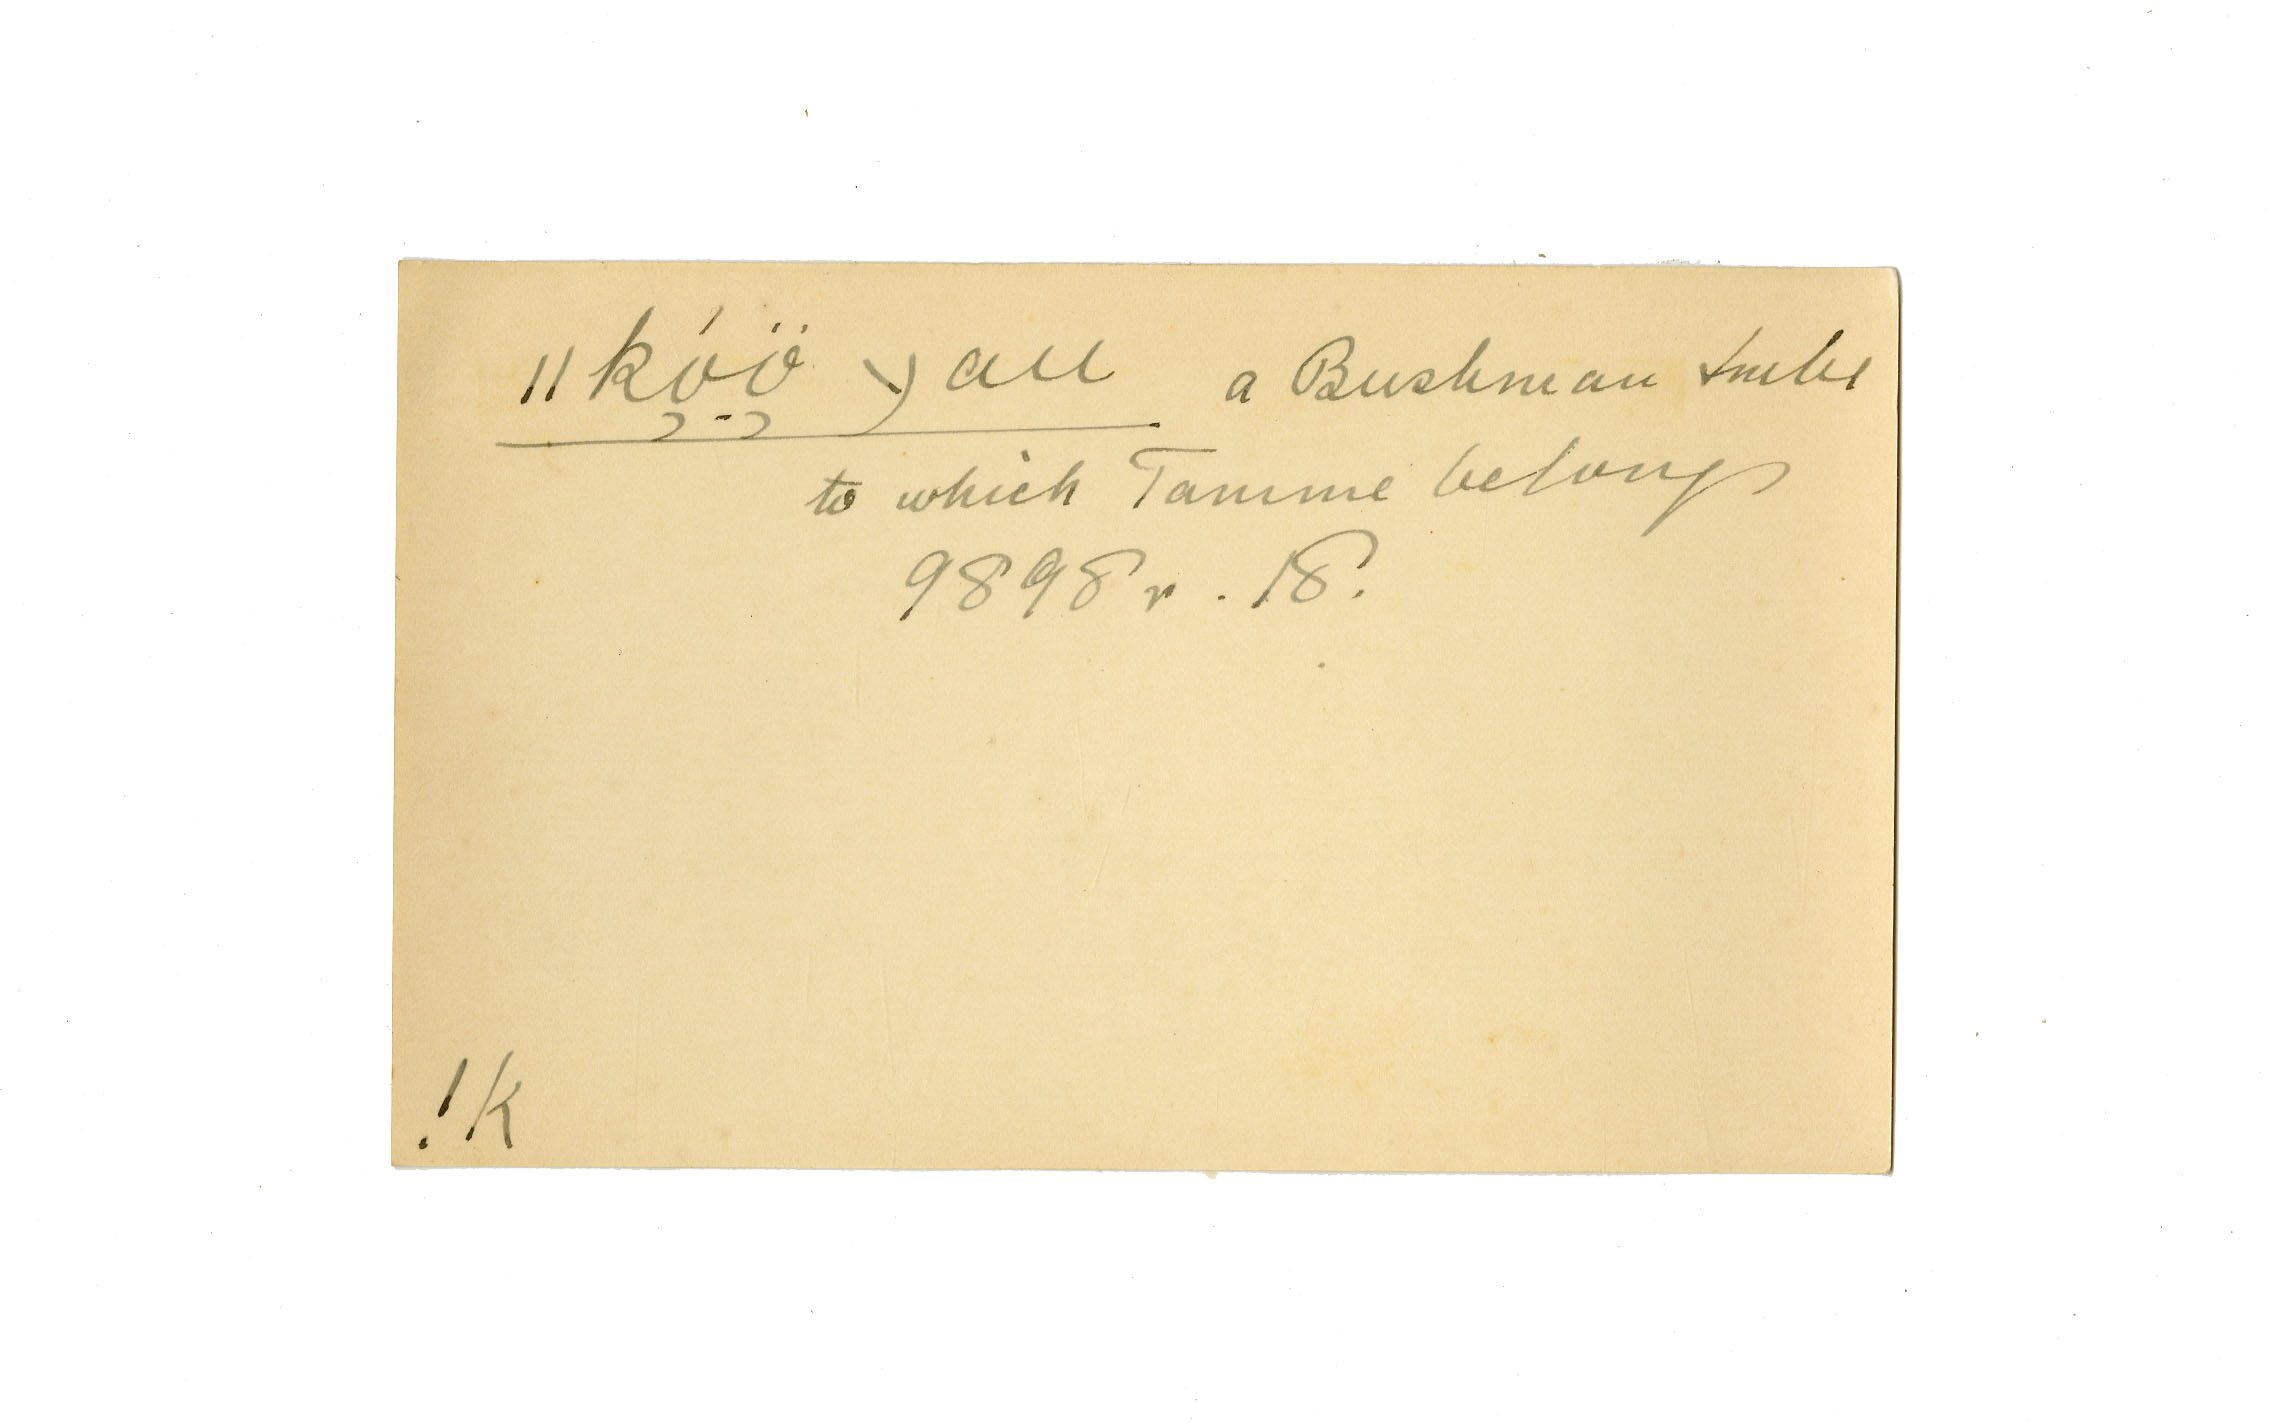 ǁkṓö yau a Bushman tribe
to which Tamme belongs
9898 r. 18.
!K